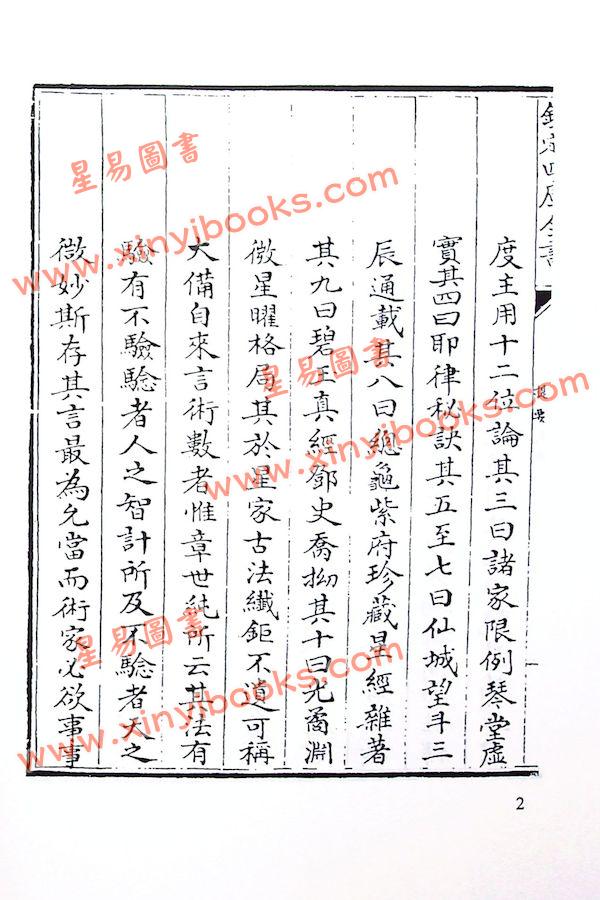 欽定四庫全書
提要
度主用十二位論其三曰諸家限例琴堂虛
實其四曰耶律秘訣其五至七曰仙城望斗三
辰通載其八曰總龜紫府珍藏星經雜著
其九曰碧玉真經鄧史喬拗其十曰光喬淵
微星曜格局其於星家古法纖鉅不遺可稱
大備自來言術數者惟章世純所云其法有
驗有不驗驗者人之智計所及不驗者天之
微妙斯存其言最為允當而術家必欲事事
2
星易圖書
www.xinyibooks.com
星易圖書
www.xinyibooks.com
星易圖書
www.xinyibooks.com